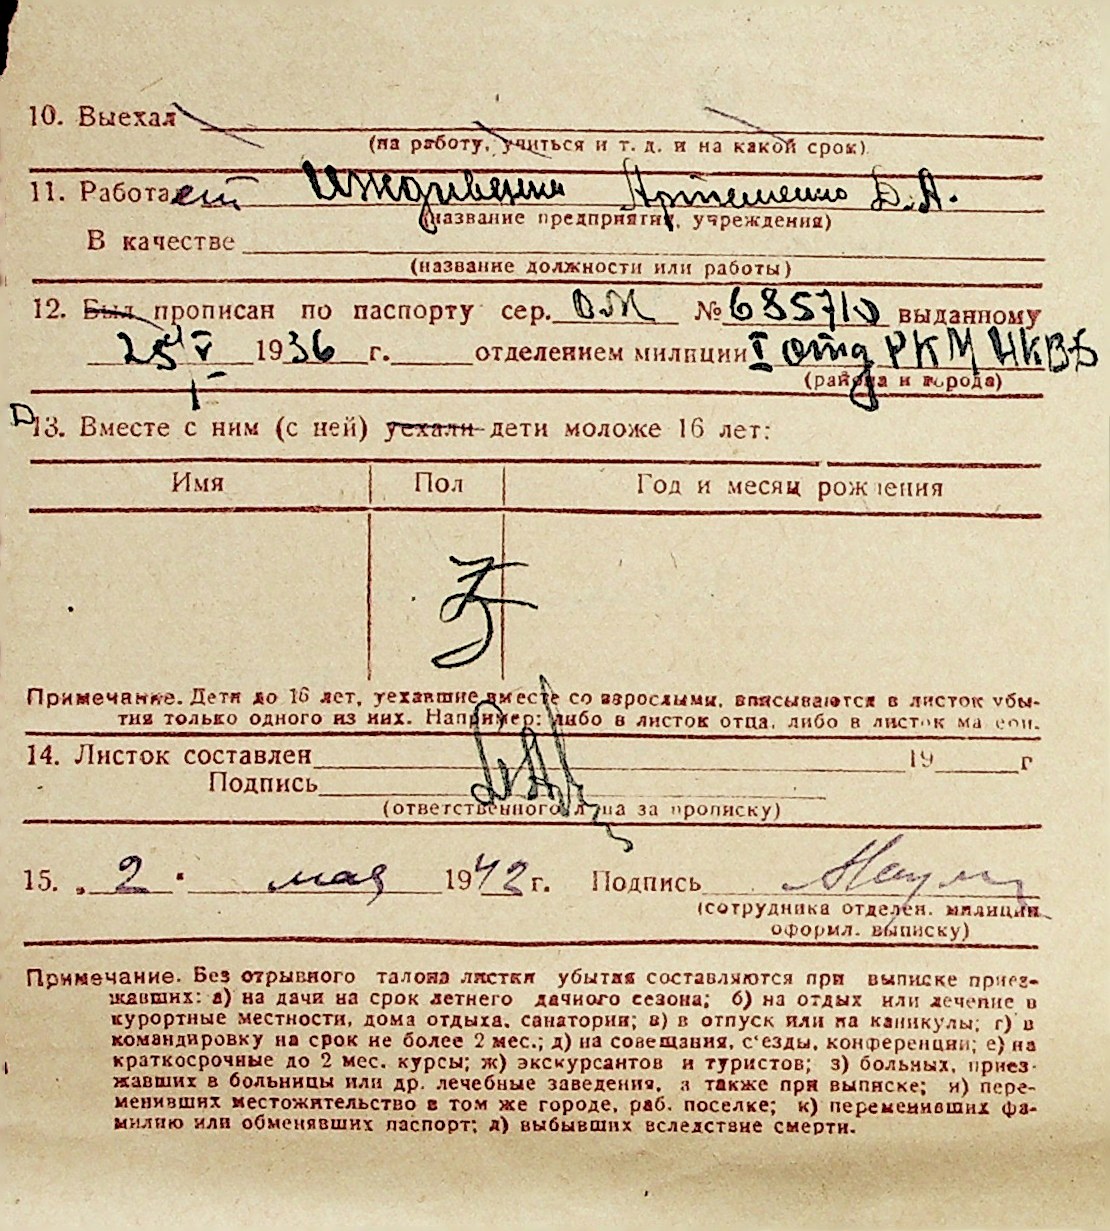 10. Выехал
(на работу, учиться и т. д. и на какой срок)
11. Работает Иждивенка Артеменко Д.А.
(название предприятия, учреждения)
В качестве
(название должности или работы)
12. Был прописан по паспорту сер. ОМ № 685710 выданному
25/V 1936 г. отделением милиции I отд РКМ НКВД
(района и города)
13. Вместе с ним (с ней) уехали дети моложе 16 лет:
Имя Пол Год и месяц рождения
Примечание. Дети до 16 лет, уехавшие вместе со взрослыми, вписываются в листок убы-
тия только одного из них. Например: либо в листок отца, либо в листок матери.
14. Листок составлен 19 г
Подпись
(ответственного лица за прописку)
15. „ 2 " мая 1942 г. Подпись
(сотрудника отделен. милиции
оформл. выписку)
Примечание. Без отрывного талона листки убытия составляются при выписке приез-
жавших: а) на дачи на срок летнего дачного сезона; б) на отдых или лечение в
курортные местности, дома отдыха, санатории; в) в отпуск или на каникулы; г) в
командировку на срок не более 2 мес.; д) на совещания, с'езды, конференции; е) на
краткосрочные до 2 мес. курсы; ж) экскурсантов и туристов; з) больных, приез-
жавших в больницы или др. лечебные заведения, а также при выписке; и) пере-
менивших местожительство в том же городе, раб. поселке; к) переменивших фа-
милию или обменявших паспорт; л) выбывших вследствие смерти.